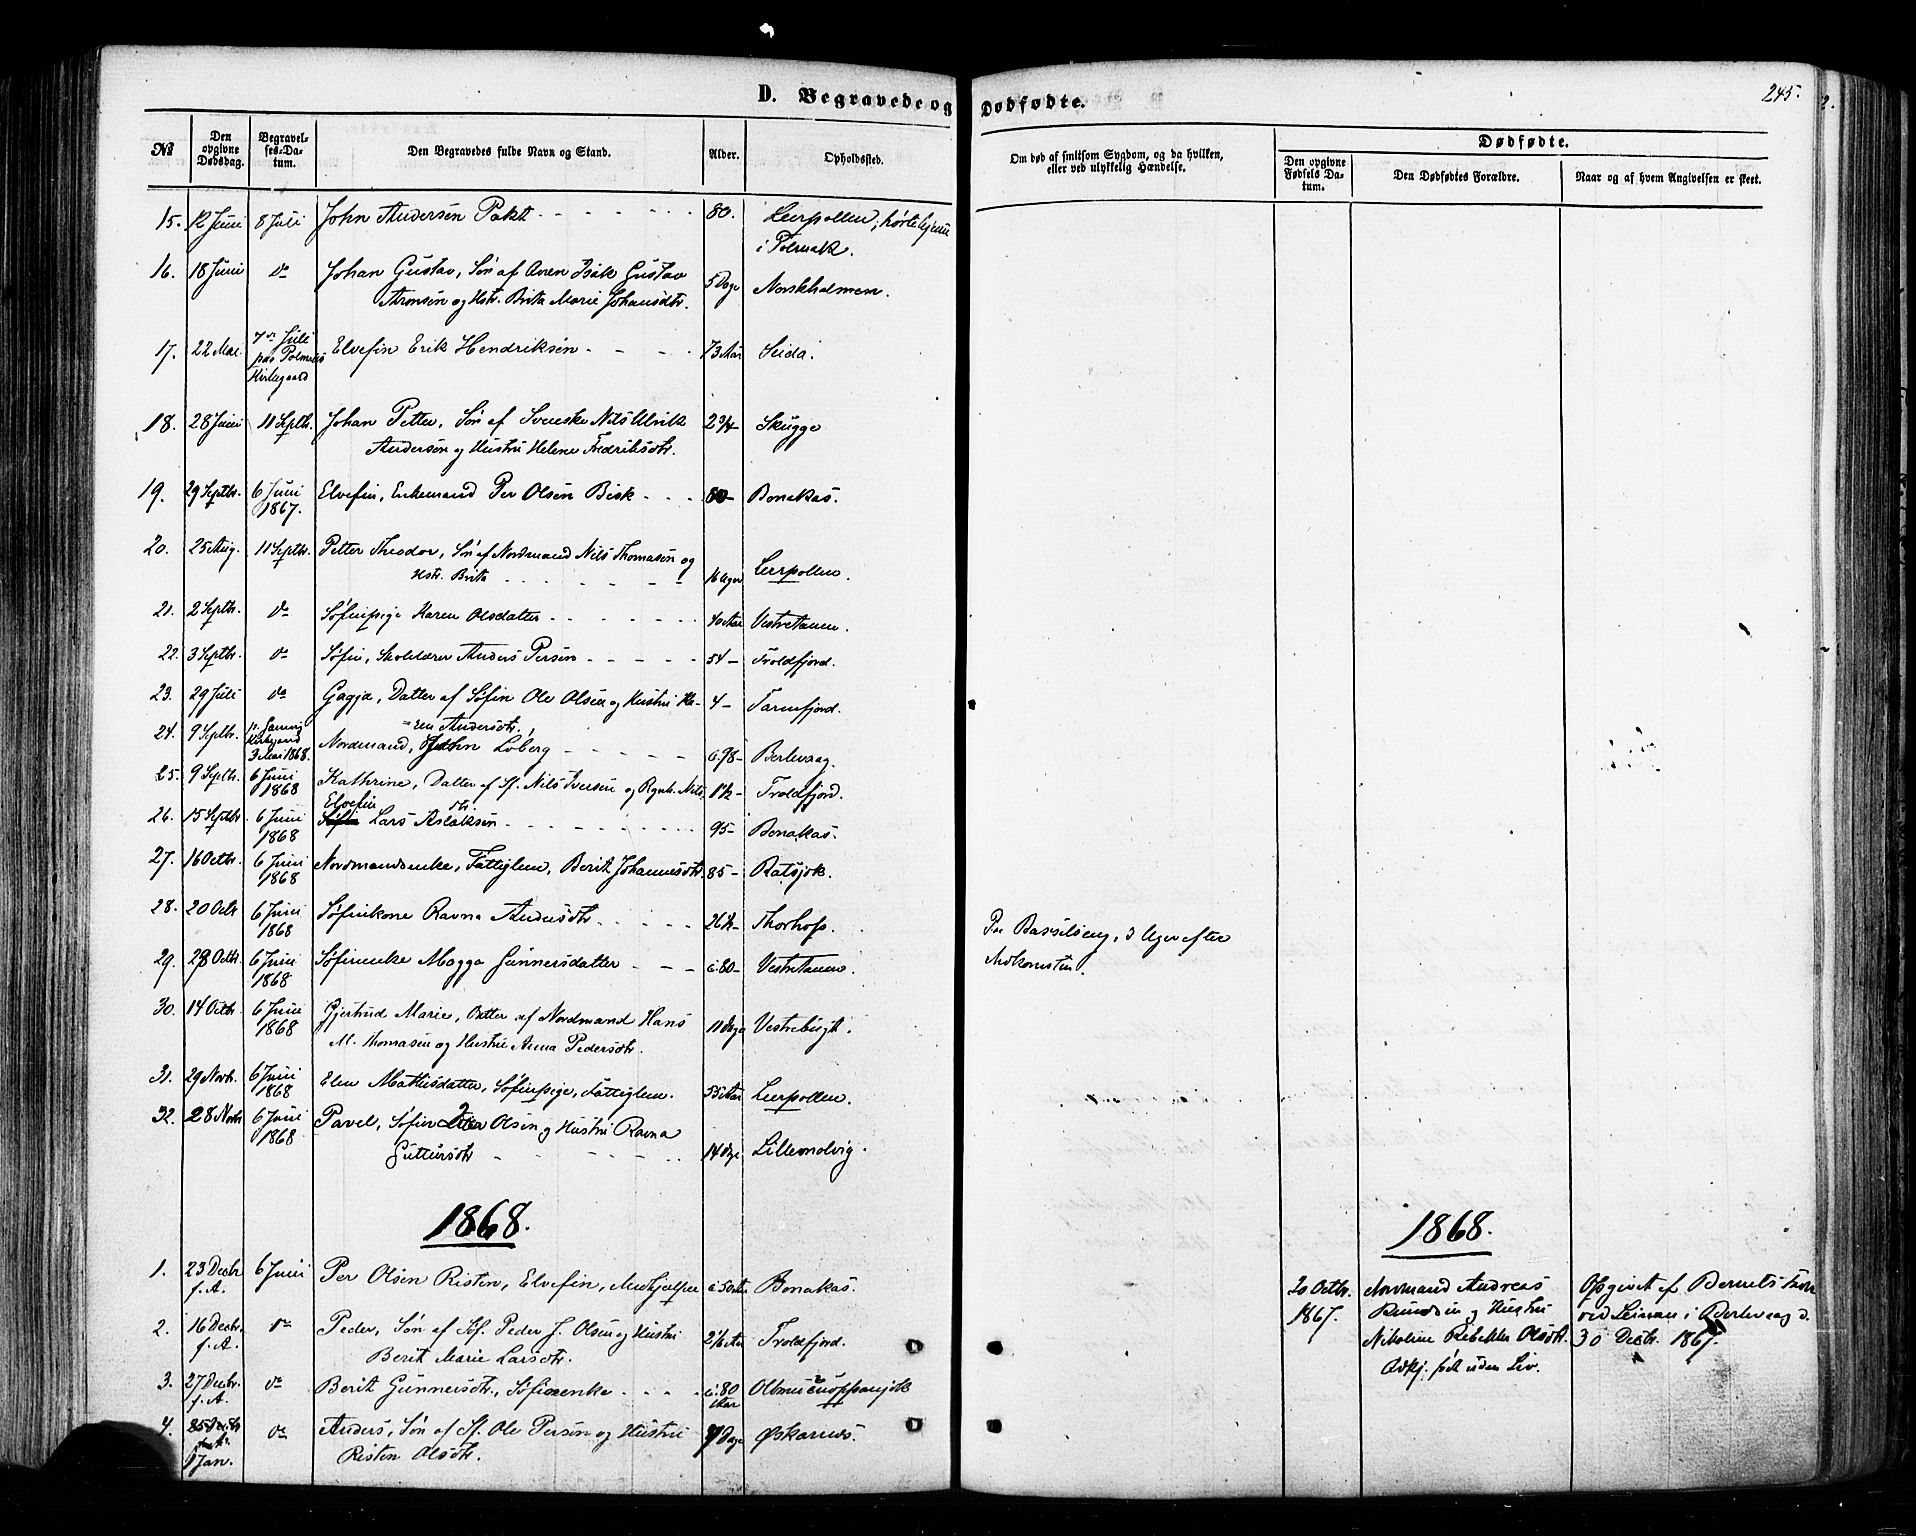 D. Begravede og Dødfødte.
245.
2.
No
Den opgivne Dødsdag.
Begravelses-Datum.
Den Begravedes fulde Navn og Stand.
Alder.
Opholdssted.
Om død af smitsom Sygdom, og da hvilken, eller ved ulykkelig Hændelse.
Dødfødte.
Den opgivne Fødsels Datum.
Den Dødfødtes Forældre.
Naar og af hvem Angivelsen er skeet.
15. 12 Juni 8 Juli John Andersen Pakt 80. Leerpollen; hørte hjemme
i Polmak.
16. 18 Juni do Johan Gustav, Søn af Isak Gustav
Aronsen og Hstr. Brita Marie Johansdtr. 5 Dage Norskholmen.
17. 22 Mai 7de Juli paa Polmaks Kirkegaard Elvefin Erik Hendriksen 73 Aar Seida.
18. 28 Juni 11 Septbr. Johan Petter, Søn af Svenske Nils Ulrik 2 3/4 - Skugge
Andersen og Hustru Helene Fredriksdtr.
19. 29 Septbr. 6 Juni 1867. Elvefin, Enkemand Per Olsen Bisk 80 - Bonakas.
20. 25 Aug. 11 Septbr. Petter Theodor, Søn af Nordmand Nils Thomasen og
Hstr. Brita 16 Uger Leerpollen.
21. 2 Septbr. do Søfinpige Karen Olsdatter 40 Aar Vestretanen.
22. 3 Septbr. do Søfin, Skolelærer Anders Persen 54 - Troldfjord.
23. 29 Juli do Gagja, Datter af Søfin Ole Olsen og Hustru Ka= 4 - Tarmfjord.
=ren Andersdtr.
24. 9 Septbr. Kirkegaard 3 Mai 1868. Nordmand, John Loberg c. 78 - Berlevaag.
25. 9 Septbr. 6 Juni 1868 Kathrine, Datter af Sf. Nils Iversen og Ragnh. Nils 1 1/2 - Troldfjord.
dtr.
26. 15 Septbr. 6 Juni 1868 Elvefin Søfin Lars Aslaksen 95 - Bonakas.
27. 16 Octbr. 6 Juni 1868 Nordmandsenke, Fattiglem, Berit Johannesdtr. 85 - Ratsjok.
28. 20 Octbr 6 Juni 1868 Søfinkone Ravna Andersdtr. 26 1/2 - Thorhop. Paa Barselseng, 3 Uger efter
Nedkomsten.
29. 28 Octbr. 6 Juni 1868 Søfinenke Magga Gunnersdatter c. 80 - Vestretanen.
30. 14 Octbr. 6 Juni 1868 Gjertrud Marie, Datter af Nordmand Hans
M. Thomasen og Hustru Anna Pedersdtr. 11 Dage Vestrebugt.
31. 29 Novbr. 6 Juni 1868 Elen Mathisdatter, Søfinpige, Fattiglem. 55 Aar Leerpollen.
32. 28 Novbr 6 Juni 1868 Pavel, Søfin Olsen og Hustru Ravna
Guttorsdtr 14 Dage Lillemolvig.
1868.
1868.
1. 23 Decbr f. A. 6 Juni Per Olsen Risten, Elvefin, Medhjælper c. 50 Aar Bonakas.
2. 16 Decbr. f. A. do Peder, Søn af Sf. Peder J. Olsen og Hustru
Berit Marie Larsdtr. 2 1/2 Aar Troldfjord.
3. 27 Decbr. f. A. do Berit Gunnersdtr., Søfinenke c. 80 Aar
4. 25 Decbr f. A. 1 Jan. do Anders, Søn af Sf. Ole Persen og Hustru
Risten Olsdtr. 7 Dage Øskarnes.
20 Octbr. 1867. Nordmand Andreas
Knudsen og Hustru
Nikoline Rebekka Olsdtr.
født uden Liv.
Opgivet af
i Berlevaag d.
30 Decbr. 1867.